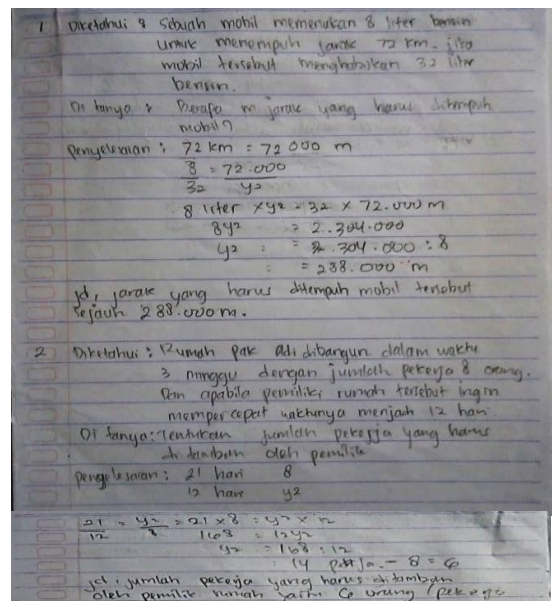 1 Diketahui : Sebuah mobil memerlukan 8 liter bensin
untuk menempuh jarak 72 km. jika
mobil tersebut menghabiskan 32 liter
bensin.
Di tanya : Berapa m jarak yang harus ditempuh
mobil?
Penyelesaian : 72 km = 72 000 m
8/32 = 72.000/y2
8 liter x y2 = 32 x 72.000 m
8y2 = 2.304.000
y2 = 2.304.000 : 8
= 288.000 m
Jd, jarak yang harus ditempuh mobil tersebut
sejauh 288.000 m.
2 Diketahui : Rumah pak adi dibangun dalam waktu
3 minggu dengan jumlah pekerja 8 orang.
Dan apabila pemilik rumah tersebut ingin
mempercepat waktunya menjadi 12 hari.
Di tanya : Tentukan jumlah pekerja yang harus
di tambah oleh pemilik
Pengelesaian : 21 hari 8
12 hari y2
21/12 = y2/8 = 21 x 8 = y2 x 12
168 = 12y2
y2 = 168 : 12
14 pekerja. - 8 = 6
jd, jumlah pekerja yang harus ditambah
oleh pemilik rumah yaitu 6 orang /pekerja